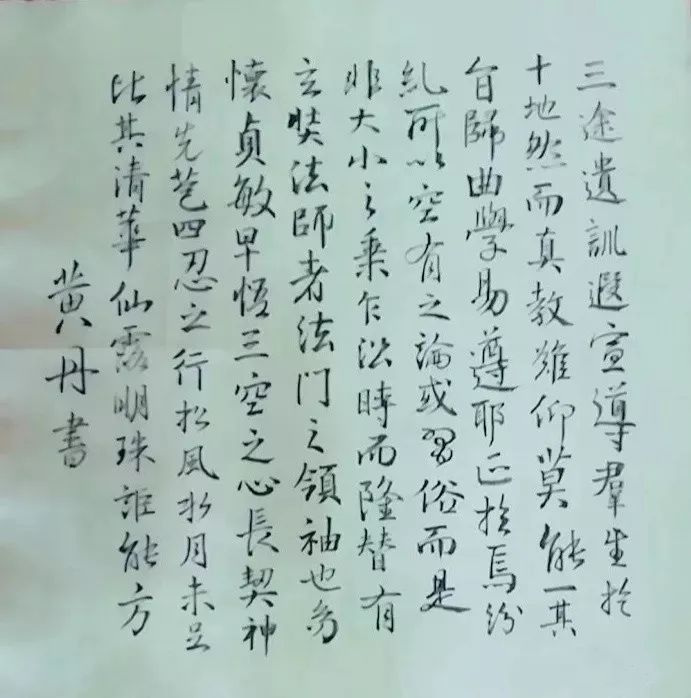 三途遺訓遐宣導羣生於
十地然而真教難仰莫能一其
旨歸曲學易遵耶正於焉紛
糺所以空有之論或習俗而是
非大小之乘乍沿時而隆替有
玄奘法師者法門之領袖也幼
懷貞敏早悟三空之心長契神
情先苞四忍之行松風水月未足
比其清華仙露明珠詎能方
黄丹書